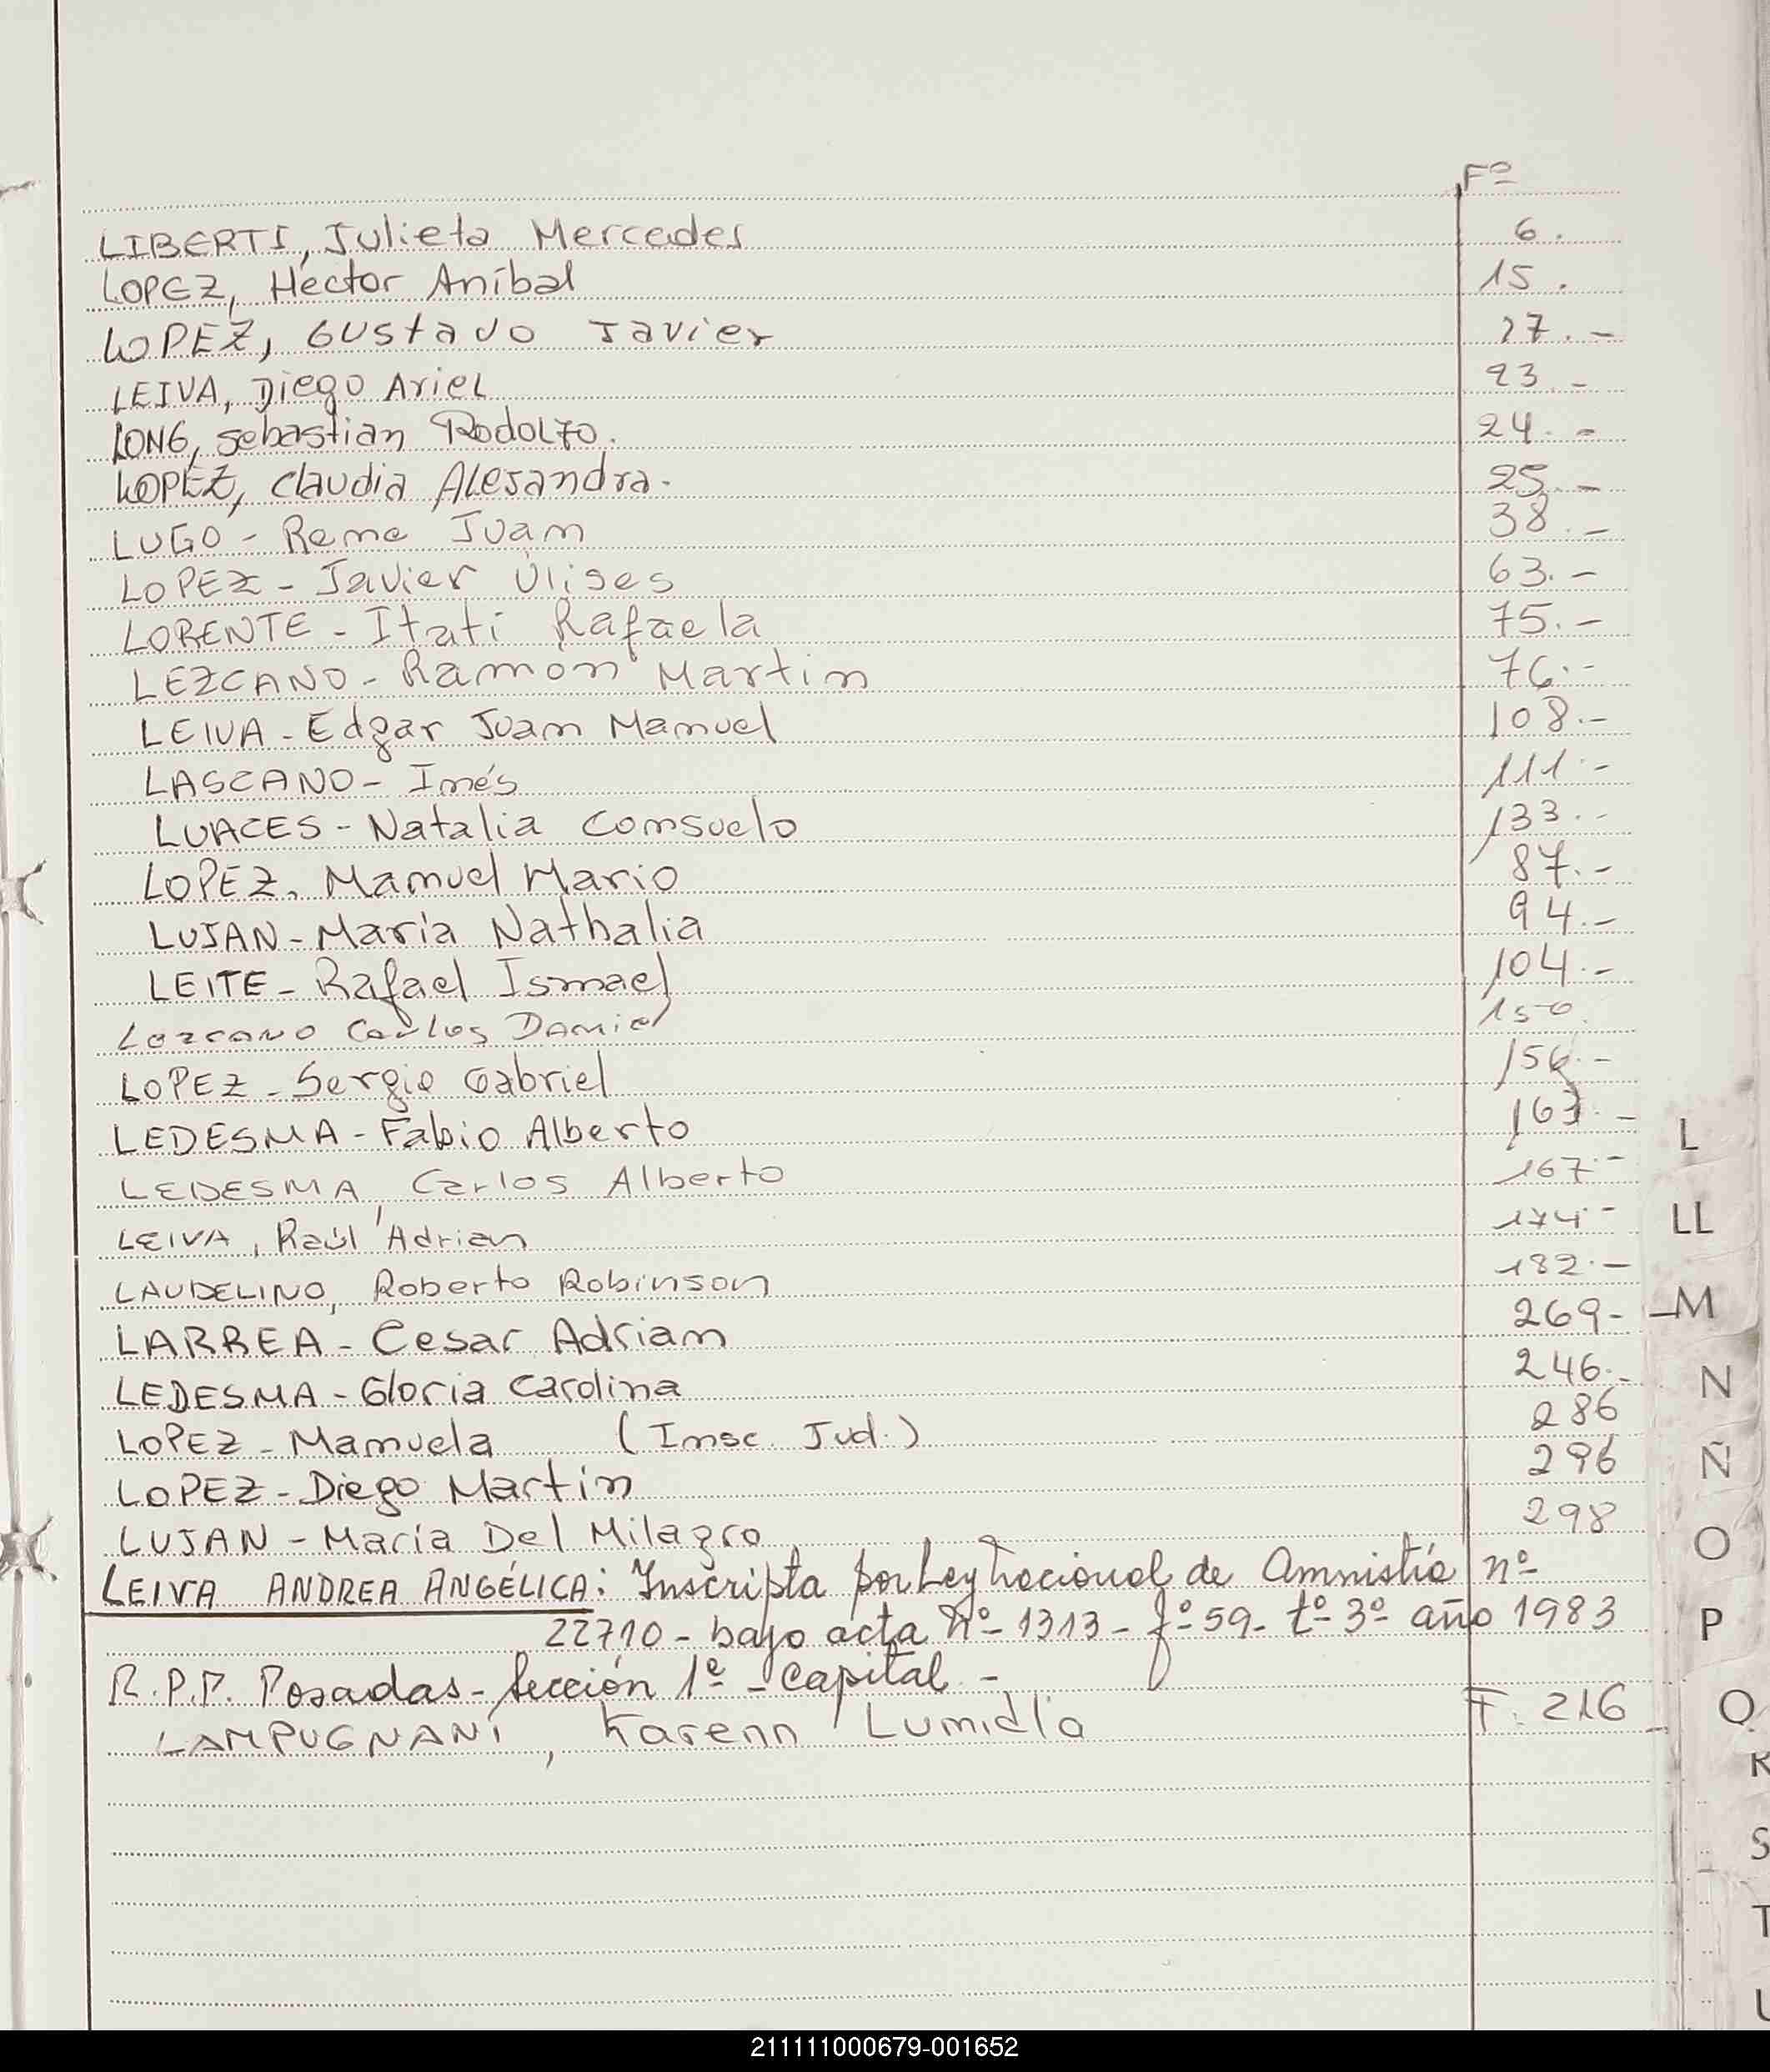 Fº
LIBERTI, Julieta Mercedes 6.
LOPEZ, Héctor Aníbal 15.
LOPEZ, Gustavo Javier 17.-
LEIVA, Diego Ariel 23.-
LONG, Sebastian Rodolfo. 24.-
LOPEZ, Claudia Alejandra. 25.-
LUGO - Rene Juan 38.-
LOPEZ - Javier Ulises 63.-
LORENTE - Itati Rafaela 75.-
LEZCANO - Ramón Martin 76.-
LEIVA - Edgar Juan Manuel 108.-
LASCANO - Inés 111.-
LUACES - Natalia Consuelo 133.-
LOPEZ. Manuel Mario 87.-
LUJAN - María Nathalia 94.-
LEITE - Rafael Ismael 104.-
Lezcano Carlos Daniel 150.
LOPEZ - Sergio Gabriel 156.-
LEDESMA - Fabio Alberto 163.-
LEDESMA, Carlos Alberto 167.-
LEIVA, Raúl Adrian 174.-
LAUDELINO, Roberto Robinson 182.-
LARREA - Cesar Adrian 269-
LEDESMA - Gloria Carolina 246.-
LOPEZ - Manuela (Insc. Jud.) 286
LOPEZ - Diego Martín 296
LUJAN - María Del Milagro 298
LEIVA ANDREA ANGÉLICA: Inscripta por Ley Nacional de Amnistía nº
22710 - bajo acta Nº 1313 - fº 59 - tº 3º año 1983
R.P.P. Posadas - Sección 1ª - Capital -
LAMPUGNANI, Karenn Lumidla F. 216
L
LL
M
N
Ñ
O
P
Q
R
S
T
U
211111000679-001652